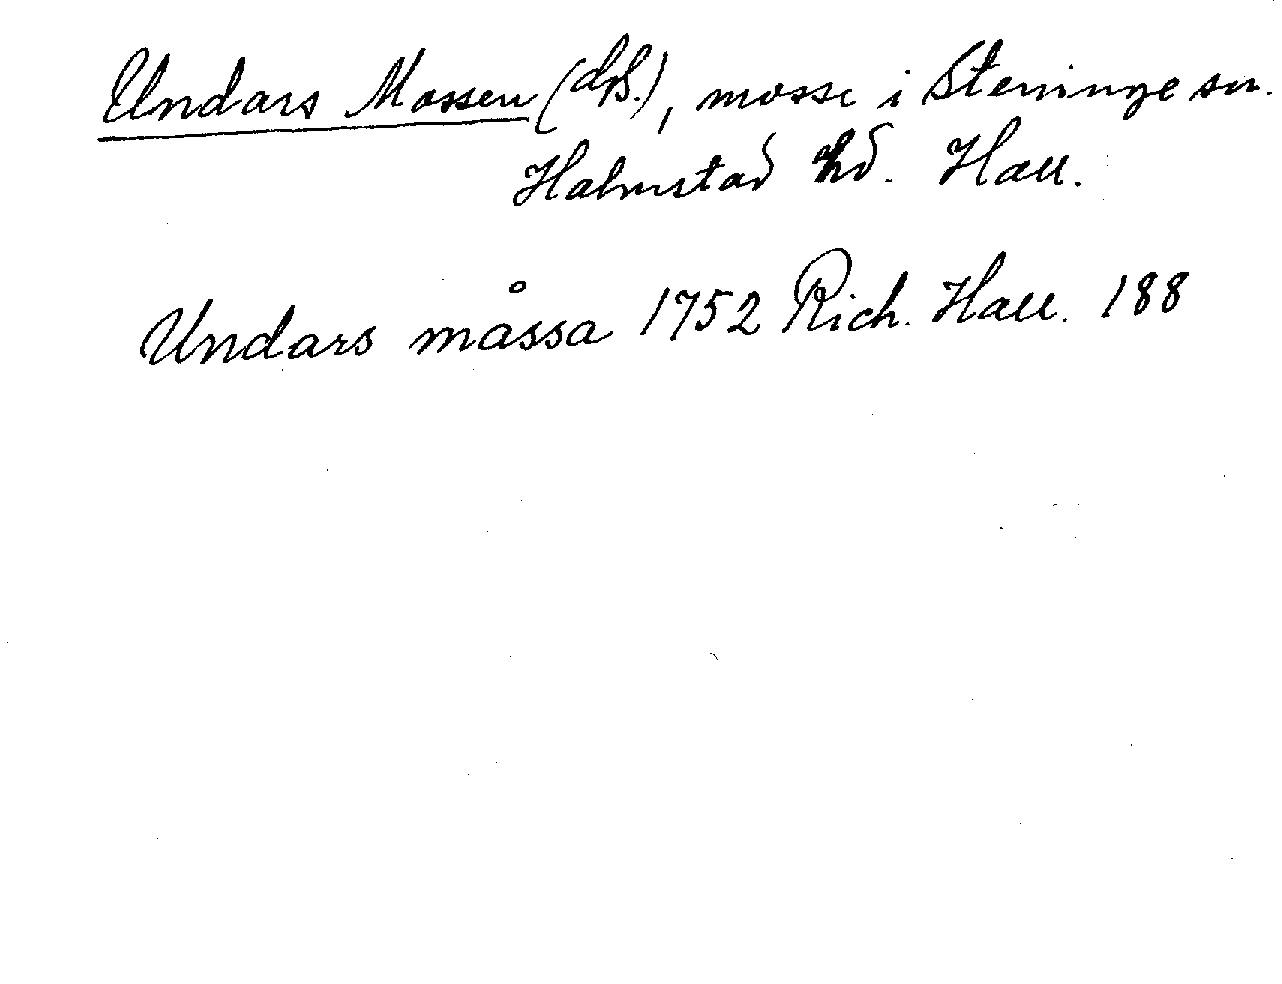 Undars Mossen (dß.), mosse i Steninge sn.
Halmstad hd. Hall.
Undars måssa 1752 Rich. Hall. 188